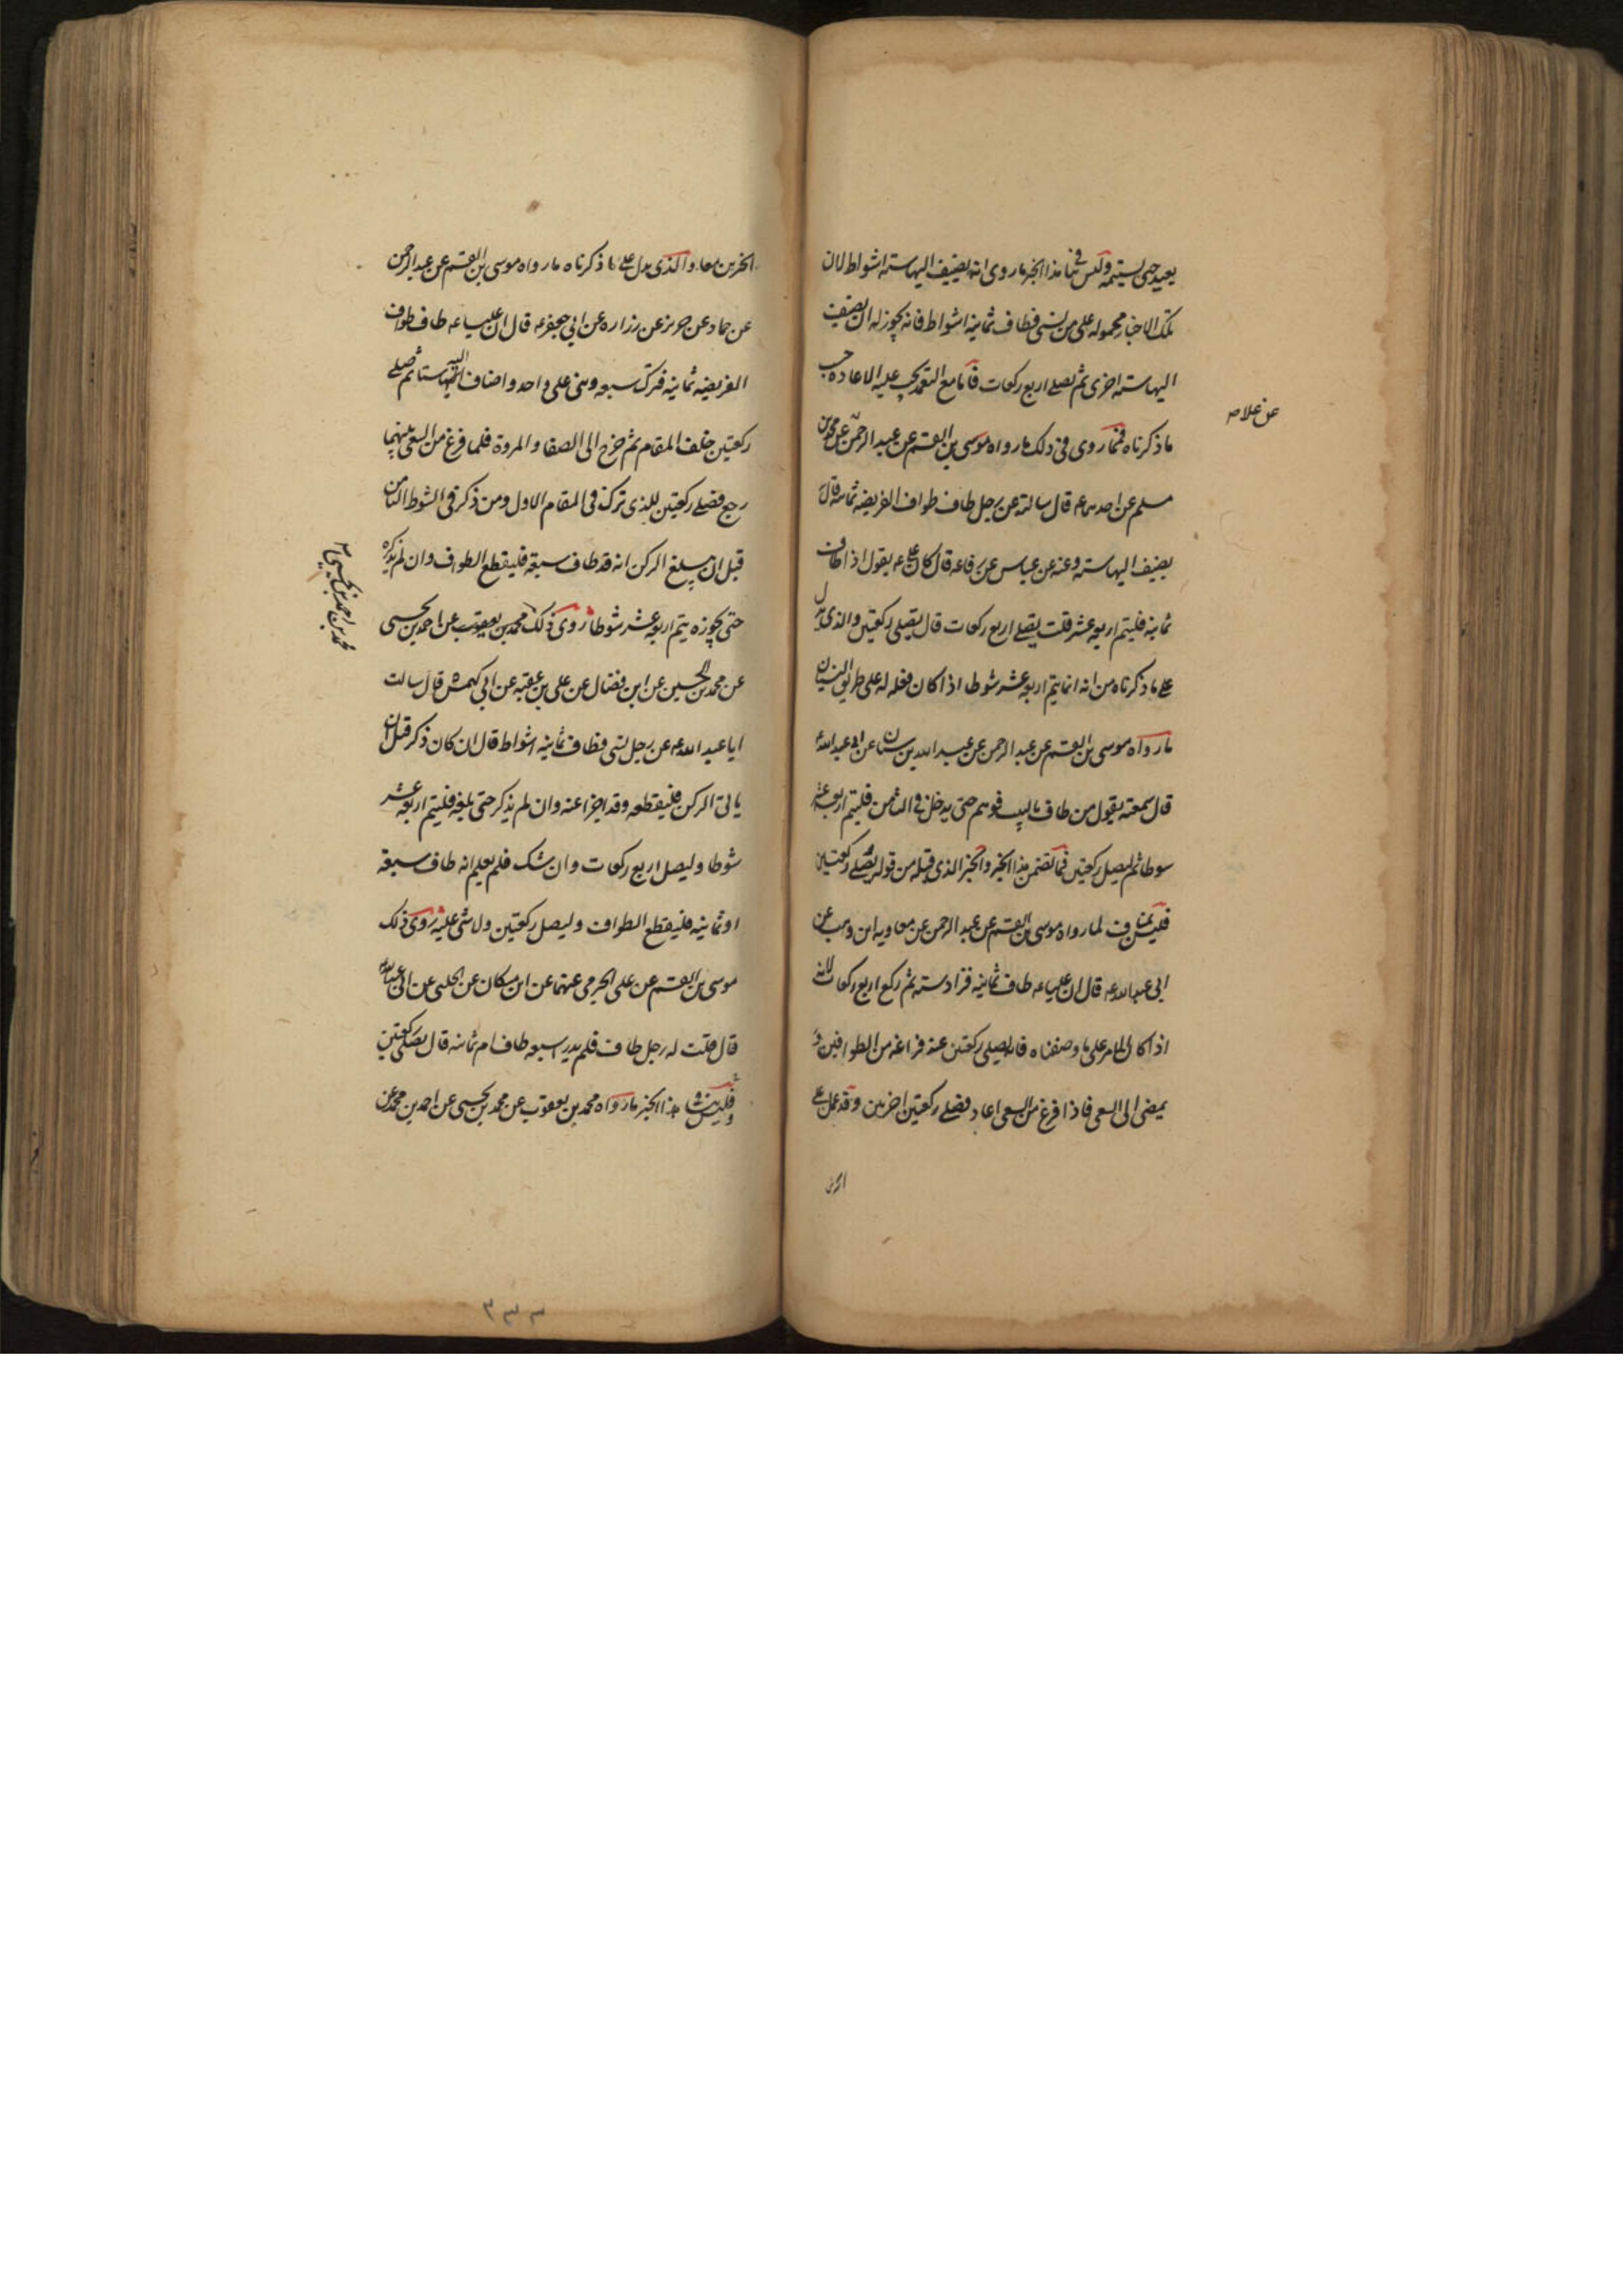 يعيد حتى يستتمه وليس ينافى هذا الخبر ما روى انه يضيف اليها ستة اشواط لان
تلك الاخبار محمولة على من نسى فطاف ثمانية اشواط فانه يجوز له ان يضيف
اليها ستة اخرى ثم يصلى اربع ركعات فاما مع التعمد يجب عليه الاعادة حسب
ما ذكرناه فمما روى فى ذلك ما رواه موسى بن القسم عن عبد الرحمن عن محمد بن
عن علا صح
مسلم عن احدهما ع قال سالته عن رجل طاف طواف الفريضه ثمانيه قال
يضيف اليها ستة وعنه عن عباس عن رفاعه قال كان على ع يقول اذا طاف
ثمانية فليتم اربعة عشر قلت يصلى اربع ركعات قال يصلى ركعتين والذى يدل
على ما ذكرناه من انه انما يتم اربعة عشر شوطا اذا كان فعله له على طريق النسيان
ما رواه موسى بن القسم عن عبد الرحمن عن عبد الله بن سنان عن ابى عبد الله ع
قال سمعته يقول من طاف بالبيت فوهم حتى يدخل فى الثامن فليتم اربعة عشر
شوطا ثم ليصل ركعتين فما تضمن هذا الخبر والخبر الذى قبله من قوله يصلى ركعتين
فليس بمناف لما رواه موسى بن القسم عن عبد الرحمن عن معاويه ابن وهب عن
ابى عبد الله ع قال ان عليا ع طاف ثمانيه فزاد ستة ثم ركع اربع ركعات لانه
اذا كان الامر على ما وصفناه فانه يصلى ركعتين عند فراغه من الطوافين و
يمضى الى السعى فاذا فرغ من السعى اعاد فصلى ركعتين اخرين وقد عمل على
الخبرين
الخبرين معا والذى يدل على ما ذكرناه ما رواه موسى بن القسم عن عبد الرحمن
عن حماد عن حريز عن زراره عن ابى جعفر ع قال ان عليا ع طاف طواف
الفريضه ثمانية فترك سبعه وبنى على واحد واضاف اليها ستا ثم صلى
ركعتين خلف المقام ثم خرج الى الصفا والمروة فلما فرغ من السعى بينهما
رجع فصلى ركعتين للذى ترك فى المقام الاول ومن ذكر فى الشوط الثامن
قبل ان يبلغ الركن انه قد طاف سبعة فليقطع الطواف وان لم يذكره
حتى يجوزه يتم اربعة عشر شوطا روى ذلك محمد بن يعقوب عن احمد بن يحيى
محمد بن احمد بن يحيى
عن محمد بن الحسين عن ابن فضال عن على بن عقبه عن ابى كهمش قال سالت
ابا عبد الله ع عن رجل نسى فطاف ثمانية اشواط قال ان كان ذكر قبل ان
ياتى الركن فليقطعه وقد اجزا عنه وان لم يذكر حتى بلغه فليتم اربعة عشر
شوطا وليصل اربع ركعات وان شك فلم يعلم انه طاف سبعة
او ثمانية فليقطع الطواف وليصل ركعتين ولا شى عليه روى ذلك
موسى بن القسم عن على الجرمى عنهما عن ابن مسكان عن الحلبى عن ابى عبد الله ع
قال قلت له رجل طاف فلم يدر اسبعه طاف ام ثمانيه قال يصلى ركعتين
وليس ينافى هذا الخبر ما رواه محمد بن يعقوب عن محمد بن يحيى عن احمد بن محمد عن
٣٣٣